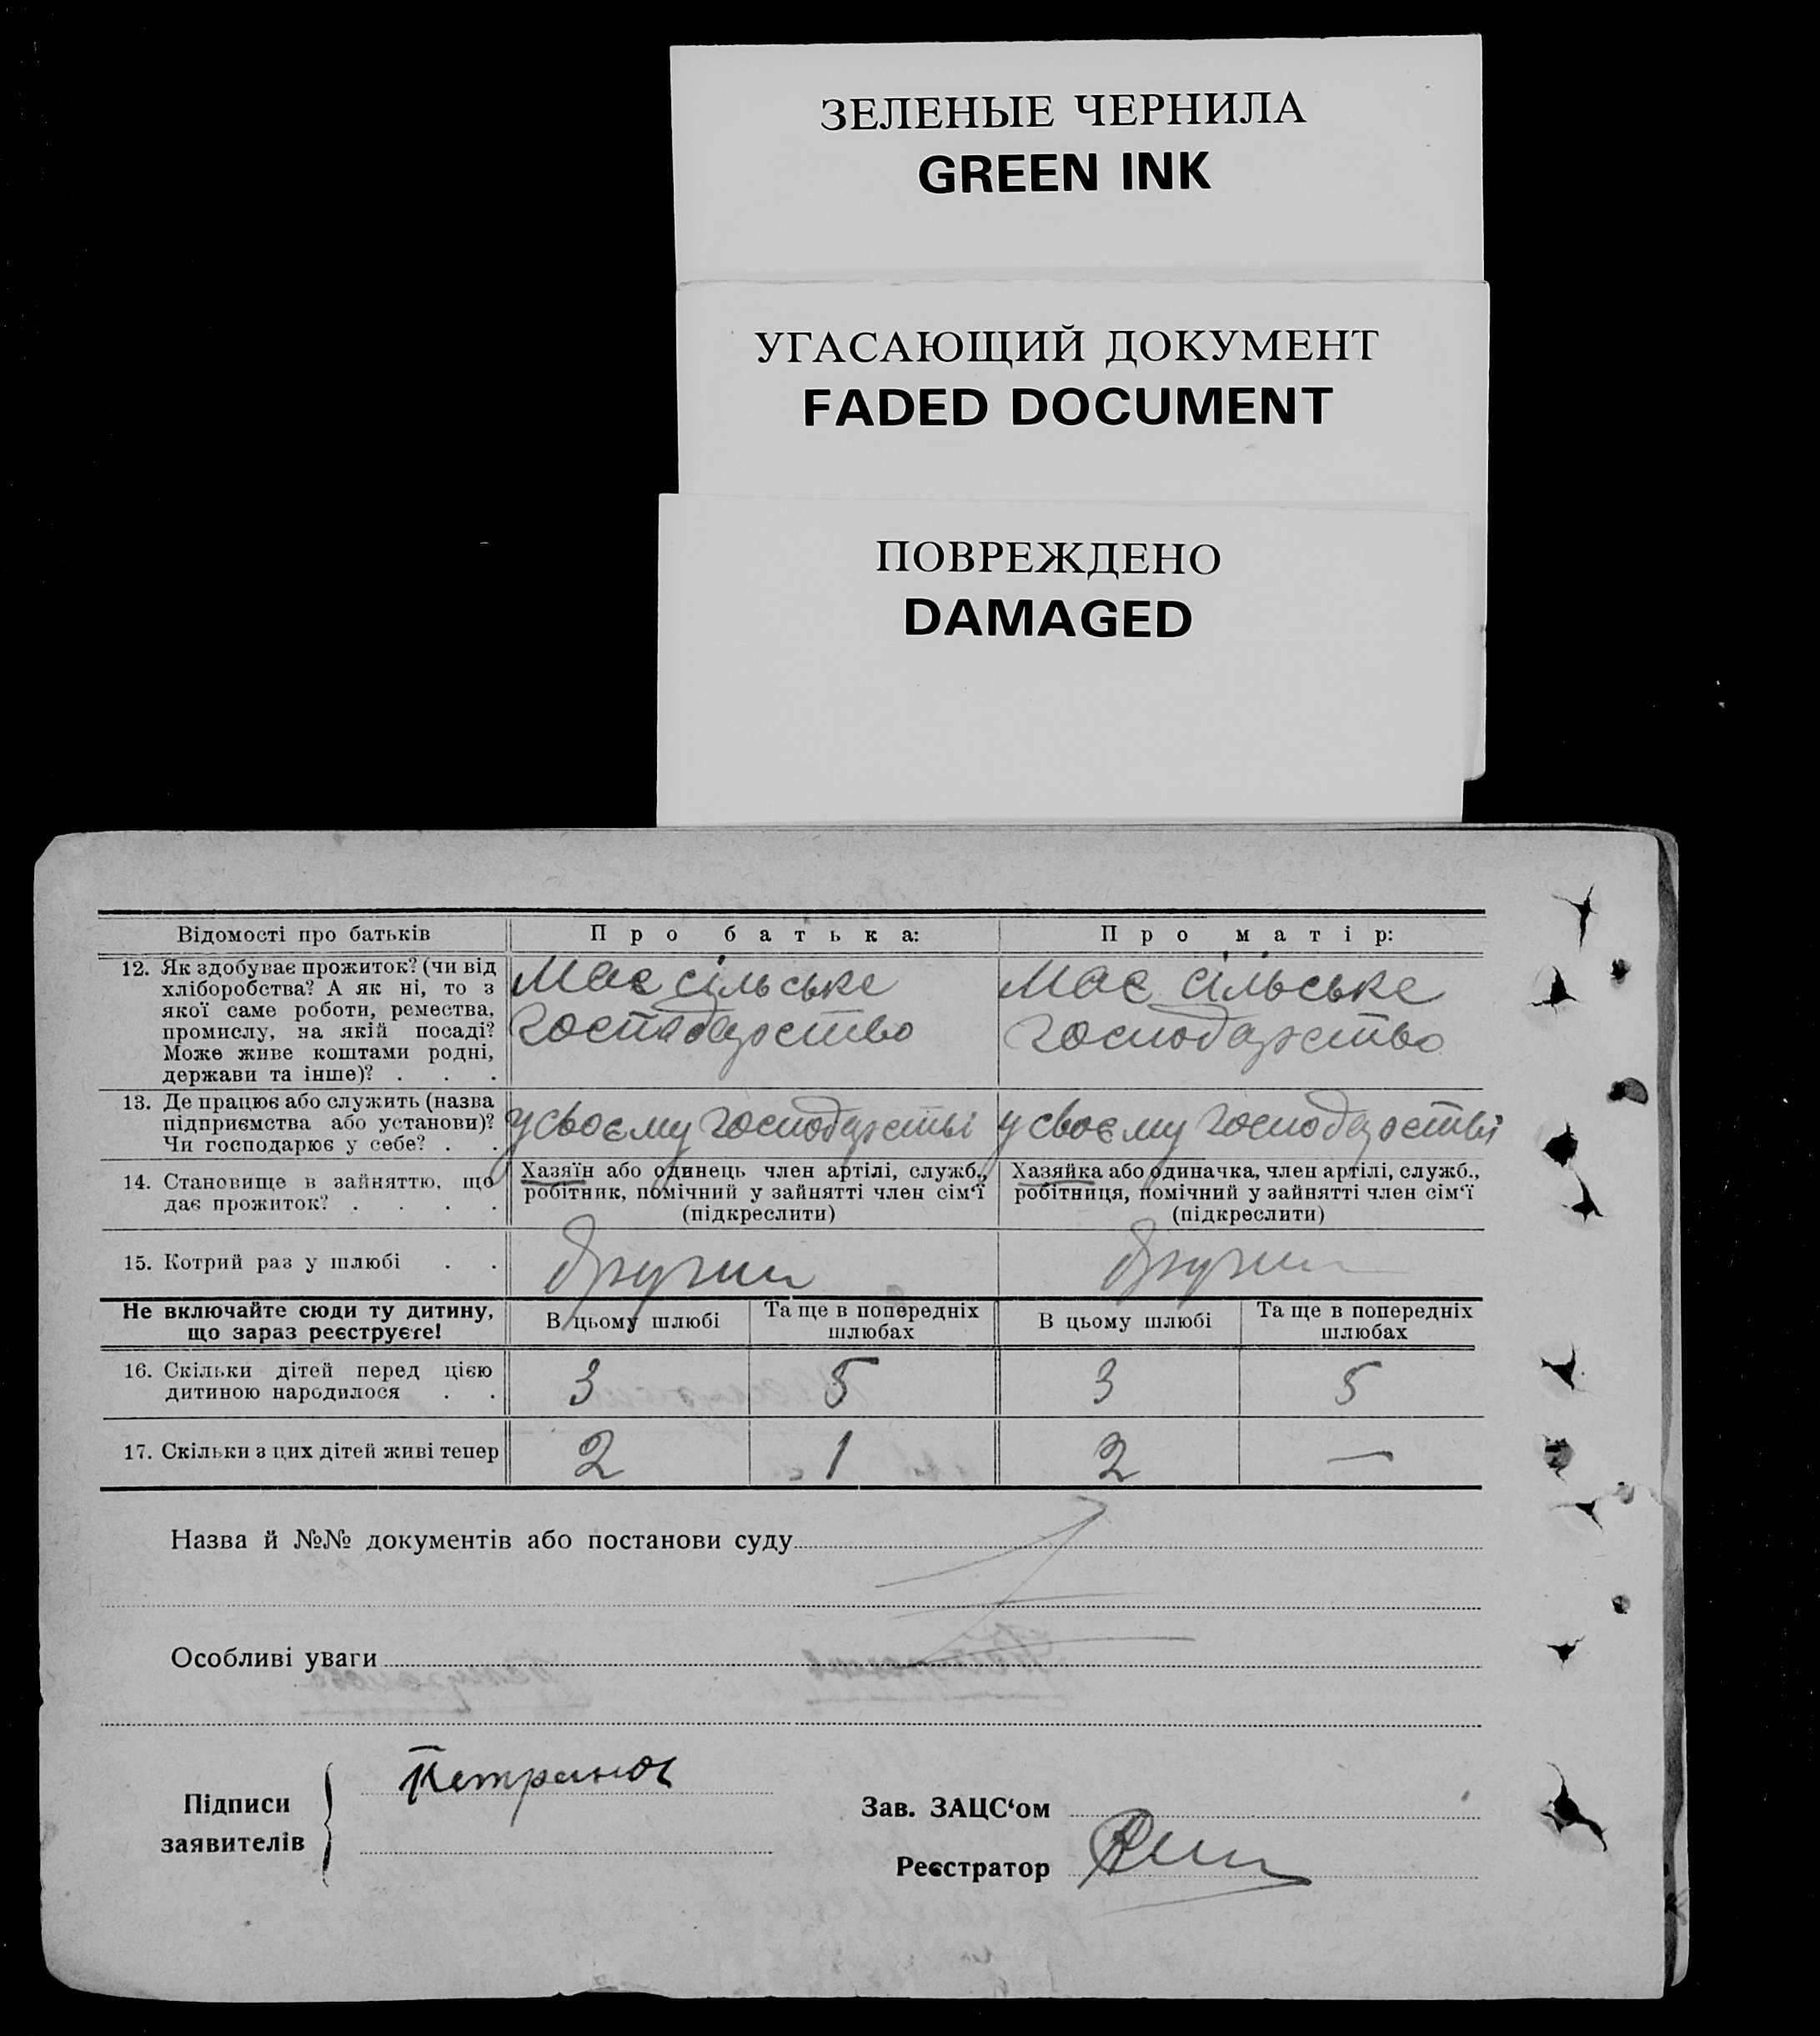 ЗЕЛЕНЫЕ ЧЕРНИЛА
GREEN INK
УГАСАЮЩИЙ ДОКУМЕНТ
FADED DOCUMENT
ПОВРЕЖДЕНО
DAMAGED
Відомості про батьків
Про батька:
Про матір:
12. Як здобуває прожиток? (чи від
хліборобства? А як ні, то з
якої саме роботи, ремества,
промислу, на якій посаді?
Може живе коштами родні,
держави та інше)? . . .
Має сільське
господарство
Має сільське
господарство
13. Де працює або служить (назва
підприємства або установи)?
Чи господарює у себе? . .
у своєму господарстві
у своєму господарстві
14. Становище в зайняттю, що
дає прожиток? . . . .
Хазяїн або одинець член артілі, служб.,
робітник, помічний у зайнятті член сім‘ї
(підкреслити)
Хазяйка або одиначка, член артілі, служб.,
робітниця, помічний у зайнятті член сім‘ї
(підкреслити)
15. Котрий раз у шлюбі . .
другий
другий
Не включайте сюди ту дитину,
що зараз реєструєте!
В цьому шлюбі
Та ще в попередніх
шлюбах
В цьому шлюбі
Та ще в попередніх
шлюбах
16. Скільки дітей перед цією
дитиною народилося . .
3
5
3
5
17. Скільки з цих дітей живі тепер
2
1
2
—
Назва й №№ документів або постанови суду
Особливі уваги
Підписи
заявителів
Зав. ЗАЦС‘ом
Реєстратор